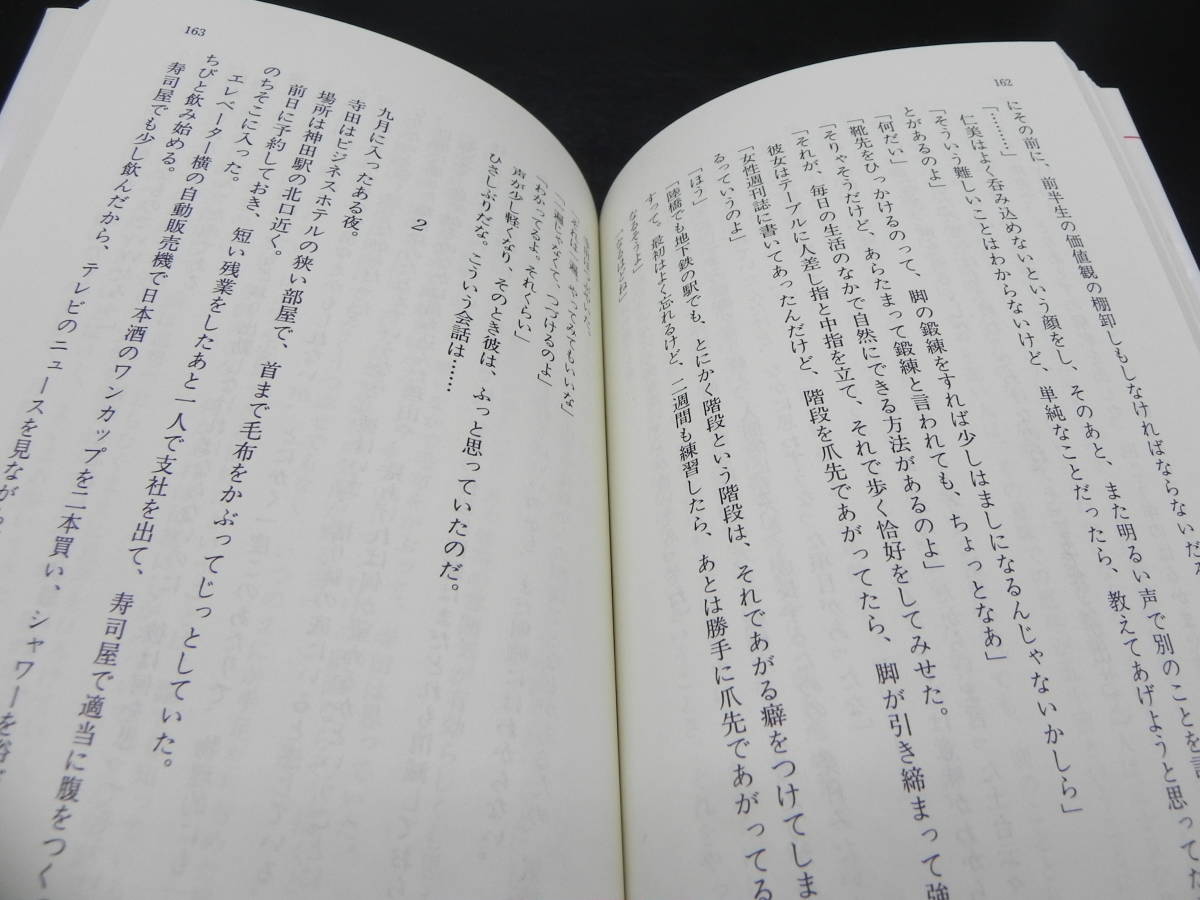 162
にその前に、前半生の価値観の棚卸しもしなければならないだ
「………」
仁美はよく呑み込めないという顔をし、そのあと、また明るい声で別のことを言
「そういう難しいことはわからないけど、単純なことだったら、教えてあげようと思って
とがあるのよ」
「何だい」
「靴先をひっかけるのって、脚の鍛練をすれば少しはましになるんじゃないかしら」
「そりゃそうだけど、あらたまって鍛練と言われても、ちょっとなあ」
「それが、毎日の生活のなかで自然にできる方法があるのよ」
彼女はテーブルに人差し指と中指を立て、それで歩く恰好をしてみせた。
「女性週刊誌に書いてあったんだけど、階段を爪先であがってたら、脚が引き締まって強
るっていうのよ」
「ほう」
「陸橋でも地下鉄の駅でも、とにかく階段という階段は、それであがる癖をつけてしま
すって。最初はよく忘れるけど、二週間も練習したら、あとは勝手に爪先であがってる
なるそうよ」
163
「わかってるよ。それくらい」
声が少し軽くなり、そのとき彼は、ふっと思っていたのだ。
ひさしぶりだな。こういう会話は……
2
九月に入ったある夜。
寺田はビジネスホテルの狭い部屋で、首まで毛布をかぶってじっとしていた。
場所は神田駅の北口近く。
前日に予約しておき、短い残業をしたあと一人で支社を出て、寿司屋で適当に腹をつく
のちそこに入った。
エレベーター横の自動販売機で日本酒のワンカップを二本買い、シャワーを浴
ちびと飲み始める。
寿司屋でも少し飲んだから、テレビのニュースを見ながら